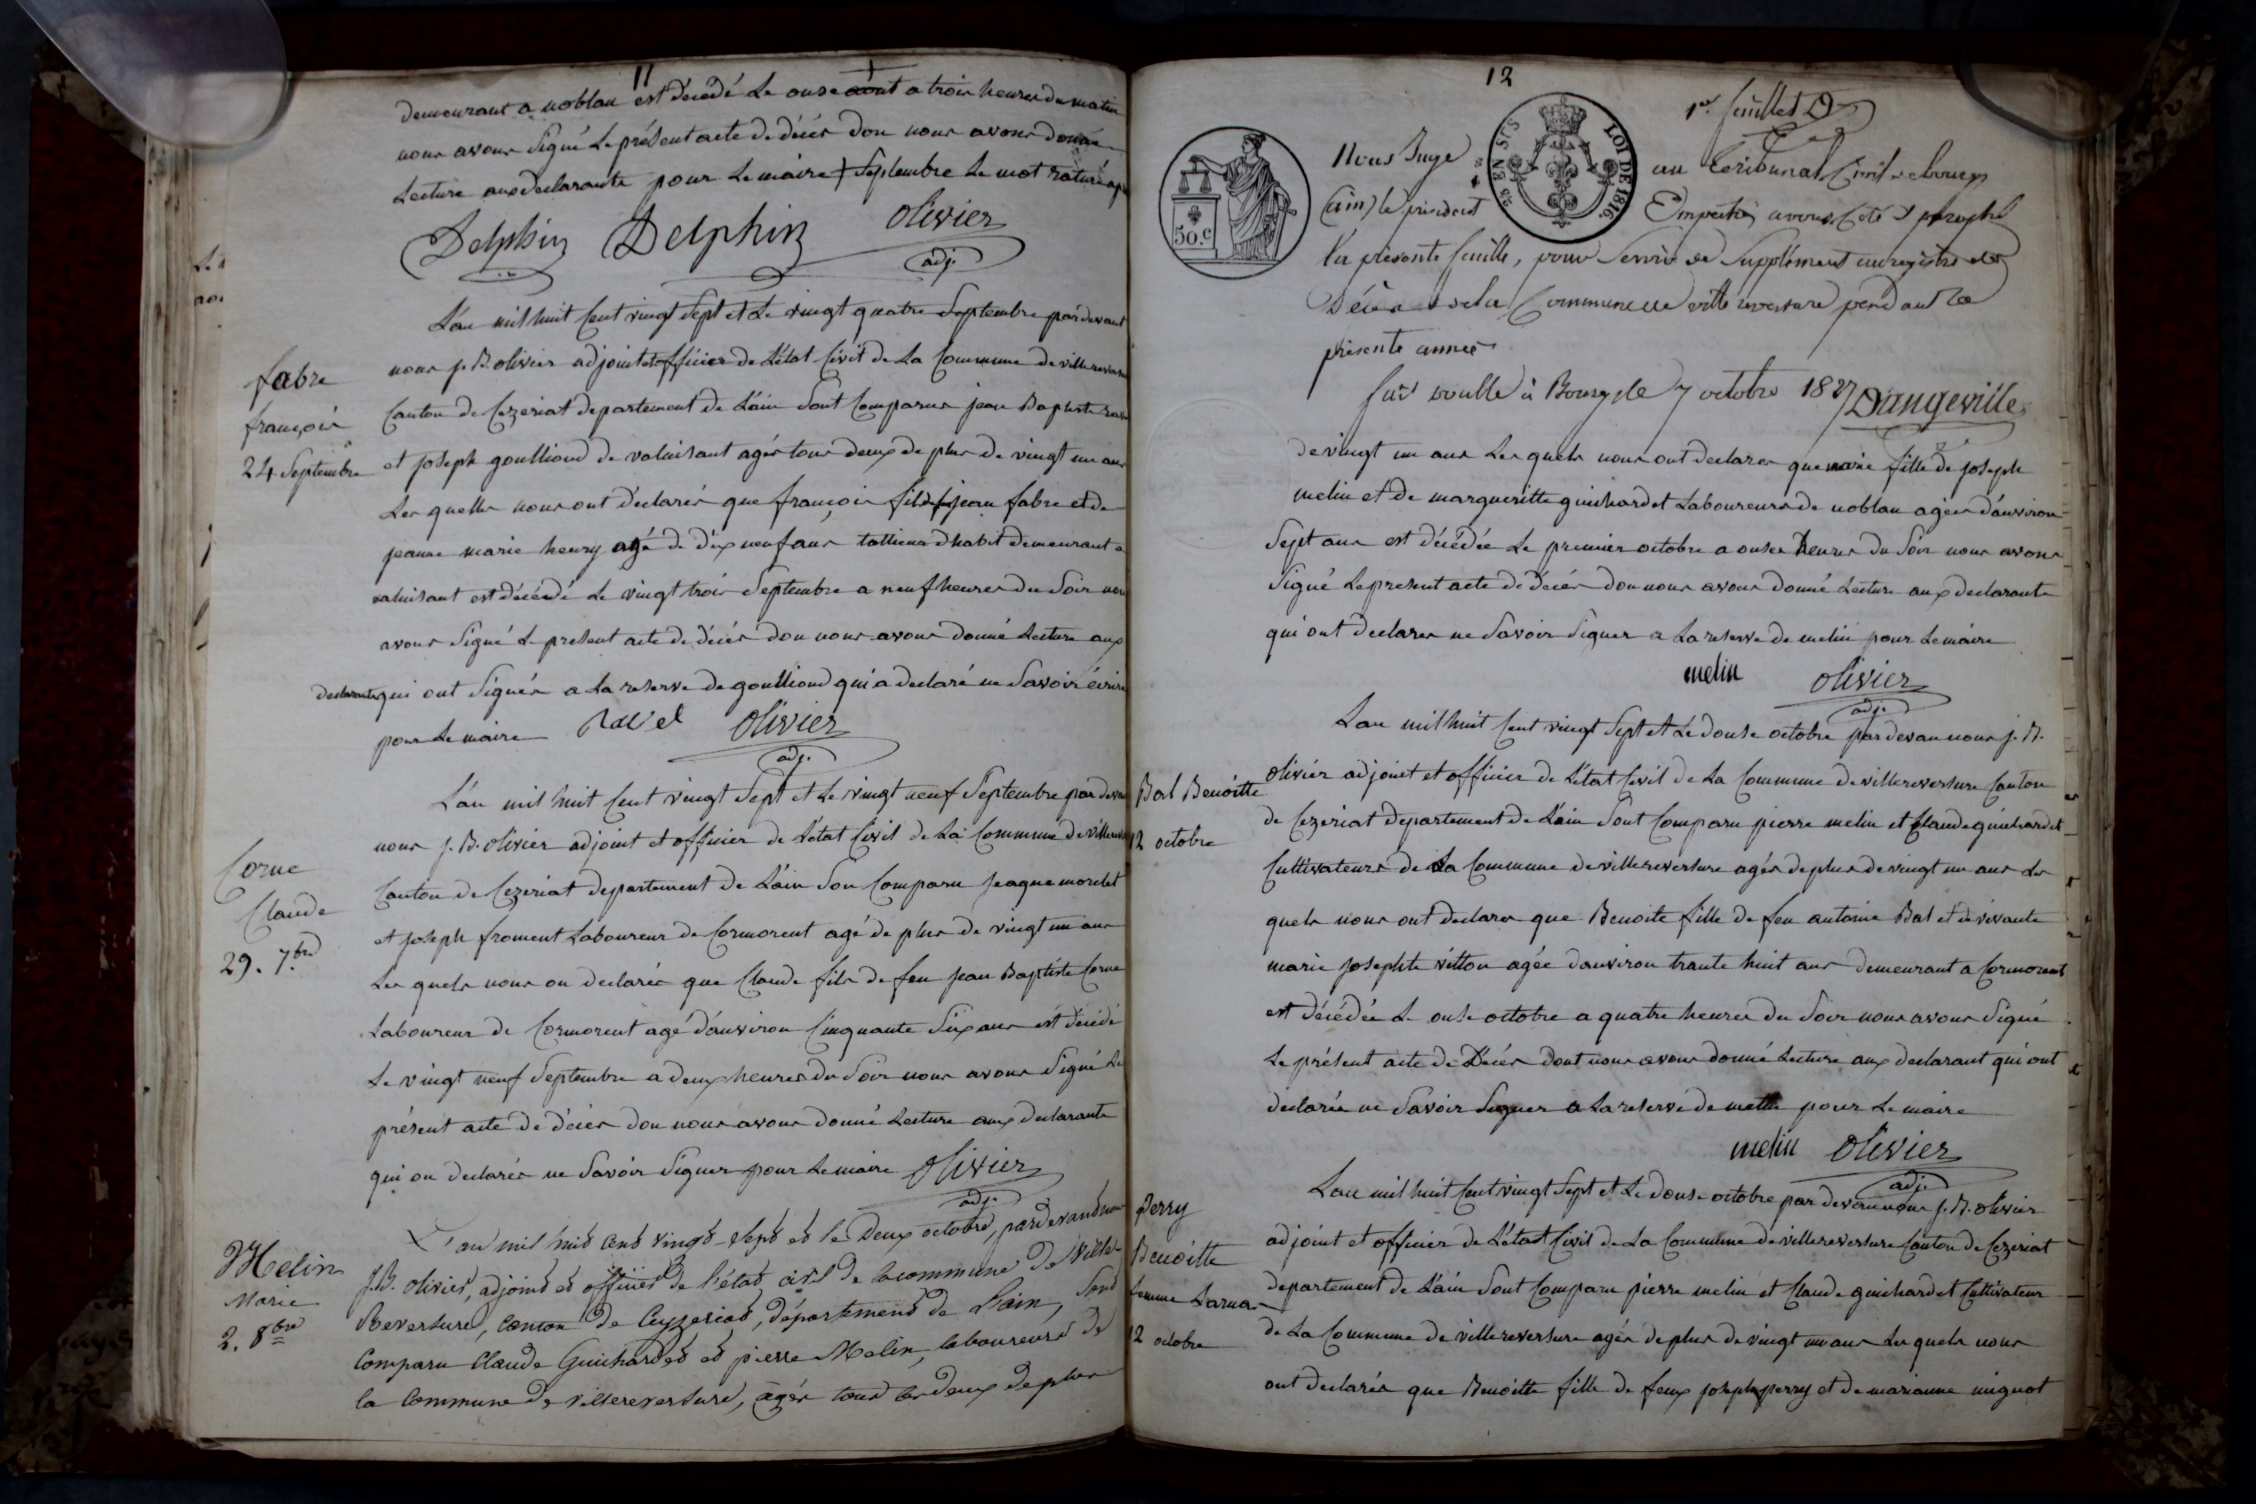 11
demeurant a noblan est décédé le onse aout a trois heures du matin
nous avons signé le présent acte de décés don nous avons donné
lecture aux declarants pour le maire + septembre le mot raturé
Delphin Delphin olivier
adj.
L'an mil huit cent vingt sept et le vingt quatre septembre pardevant
fabre
françois
24 septembre
nous j. B. olivier adjoint et officier de l'état civil de la commune de villereversure
canton de Cezeriat departement de l'ain sont comparus jean Baptiste
et joseph goullioud de valuisant agés tous deux de plus de vingt un ans
les quells nous ont déclarés que françois fils de jean fabre et de
jeanne marie henry agé de dix neuf ans tallieur d'habit demeurant a
valuisant est décédé le vingt trois septembre a neuf heures du soir nous
avons signé le present acte de décés don nous avons donné lecture aux
declarants qui ont signés a la reserve de goullioud qui a declaré ne savoir écrire
pour le maire Ravel olivier
adj.
L'an mil huit cent vingt sept et le vingt neuf septembre par devant
nous j. B. olivier adjoint et officier de l'état civil de la commune de villereversure
Corne
Claude
29. 7.bre
canton de Cezeriat departement de l'ain son comparu jeaque morelet
et joseph froment laboureur de Cormorent agé de plus de vingt un ans
les quels nous on declarés que Claude fils de feu jean Baptiste Corne
laboureur de Cormorent agé d'anviron cinquante six ans est décédé
le vingt neuf septembre a deux heures du soir nous avons signé le
présent acte de décés don nous avons donné lecture aux declarants
qui on declarés ne savoir signer pour le maire olivier
adj.
L'an mil huit cent vingt-sept et le deux octobre, pardevand nous
Melin
Marie
2. 8bre
J.B. olivier, adjoint et officier de l'état civil de la commune de Ville
Reversure, canton de Ceyzeriat, département de l'ain, sont
comparu Claude Guichardet et pierre Melin, laboureurs de
la commune de villereversure, agés tous les deux de plus
12
1er feuillet D
Nous Juge au tribunal civil de bourg
(ain) le président Empeché, avons coté & paraphé
la présente feuille, pour servir de supplément au registre des
Décès de la commune de villereversure pendant la
présente année.
50.C
LOI DE 1816.
fait double à Bourg le 7 octobre 1827 Dangeville
de vingt un ans les quels nous ont declarés que marie fille de joseph
melin et de margueritte guichardet laboureurs de noblan agée d'anviron
sept ans est décédée le premier octobre a onse heures du soir nous avons
signé le present acte de décés don nous avons donné lecture aux declarants
qui ont declarer ne savoir signer a la reserve de melin pour le maire
melin olivier
adj.
L'an mil huit cent vingt sept et le douse octobre par devan nous j. B.
Bal Benoitte
12 octobre
olivier adjoint et officier de l'état civil de la commune de villereversure canton
de Cezeriat departement de l'ain sont comparu pierre melin et Claude guichardet
cultivateurs de la commune de villereversure agés de plus de vingt un ans les
quels nous ont declarer que Benoite fille de feu antoine Bal et de vivante
marie josephte vitton agée d'anviron trante huit ans demeurant a Cormorent
est décédée le onse octobre a quatre heures du soir nous avons signé
le présent acte de décés dont nous avons donné lecture aux declarant qui ont
declarés ne savoir signer a la reserve de pour le maire
melin olivier
adj.
L'an mil huit cent vingt sept et le douse octobre par devan nous j. B. olivier
Perry
Benoitte
femme
12 octobre
adjoint et officier de l'état civil de la commune de villereversure canton de Cezeriat
departement de l'ain sont comparu pierre melin et Claude guichardet cultivateur
de la commune de villereversure agés de plus de vingt un ans les quels nous
ont declarés que Benoitte fille de feux joseph perry et de marianne mignot